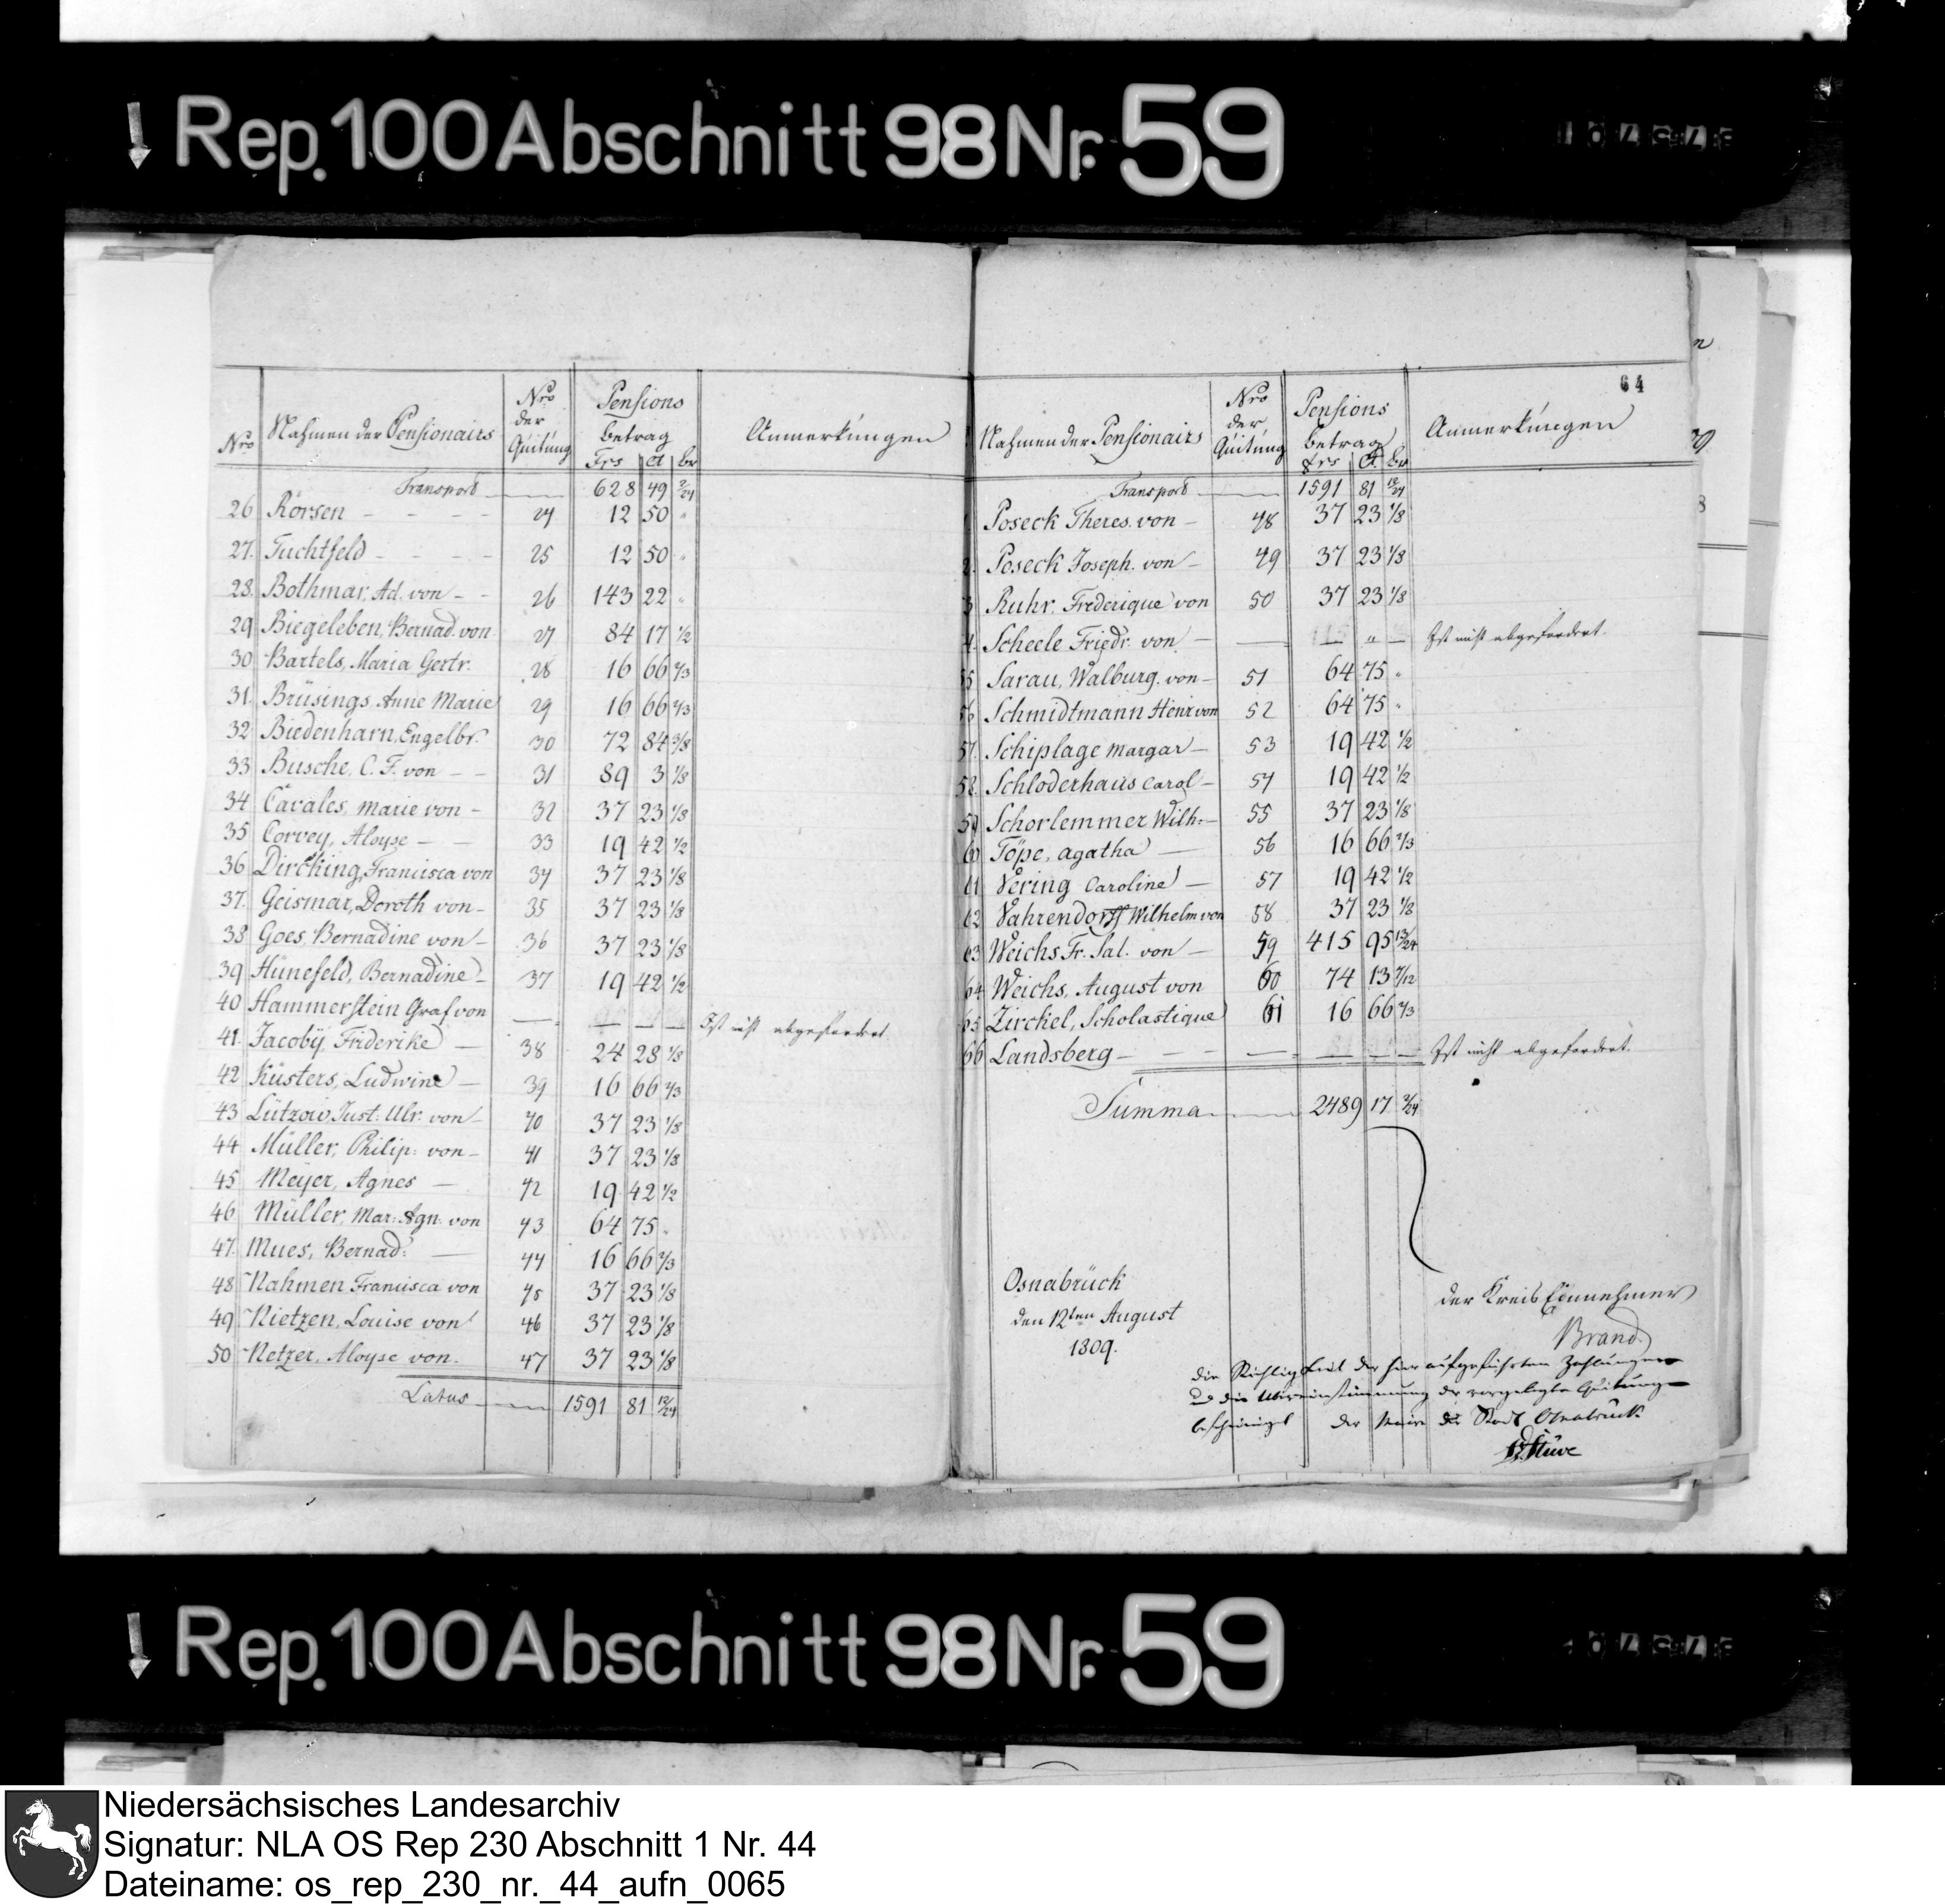 Rep. 100 Abschnitt 98 Nr. 59
Nro Nahmen der Pensionairs Nro der Quitung Pensions betrag Frs Ct br Anmerkungen
Transport 628 49 2/24
26 Rörsen - - - - 24 12 50 "
27. Tuchtfeld - - - - 25 12 50 "
28. Bothmar, Ad. von - - 26 143 22 "
29 Biegeleben, Bernad. von 27 84 17 1/2
30 Bartels, Maria Gertr. 28 16 66 2/3
31. Brüsings Anne Marie 29 16 66 2/3
32 Biedenharn, Engelbr. 30 72 84 3/8
33 Busche, C. F. von - - 31 89 3 1/8
34 Cavales, Marie von - 32 37 23 1/8
35 Corvey, Aloyse - - 33 19 42 1/2
36 Dircking, Francisca von 34 37 23 1/8
37. Geismar, Doroth von - 35 37 23 1/8
38 Goes, Bernadine von - 36 37 23 1/8
39 Hünefeld, Bernadine - 37 19 42 1/2
40 Hammerstein Graf von — — — — Ist nicht abgefordert.
41. Jacobÿ, Friderike — 38 24 28 1/8
42 Küsters, Ludwine — 39 16 66 2/3
43 Lützow Just: Ulr. von - 40 37 23 1/8
44 Müller, Philip: von - 41 37 23 1/8
45 Meÿer, Agnes — 42 19 42 1/2
46 Müller, Mar: Agn: von 43 64 75 "
47. Mues, Bernad: — 44 16 66 2/3
48 Nahmen Francisca von 45 37 23 1/8
49 Nietzen, Louise von 46 37 23 1/8
50 Netzer, Aloyse von. 47 37 23 1/8
Latus 1591 81 12/24
64
Nahmen der Pensionairs Nro der Quitung Pensions betrag frs Ct br Anmerkungen
Transport 1591 81 12/24
Poseck Theres. von - 48 37 23 1/8
Poseck Joseph. von - 49 37 23 1/8
Ruhr, Frederique von 50 37 23 1/8
4. Scheele Friedr. von - — — " — Ist nicht abgefordert.
55 Sarau, Walburg. von - 51 64 75 "
56 Schmidtmann Henr von 52 64 75 "
57. Schiplage Margar - 53 19 42 1/2
58. Schloderhaus Carol - 54 19 42 1/2
59 Schorlemmer Wilh: - 55 37 23 1/8
60 Töpe, Agatha — 56 16 66 2/3
61 Vering Caroline — 57 19 42 1/2
62 Vahrendorff Wilhelm von 58 37 23 1/8
63 Weichs Fr. Sal. von — 59 415 95 13/24
64 Weichs, August von 60 74 13 7/12
65 Zirckel, Scholastique 61 16 66 2/3
66 Landsberg - — - — — — — Ist nicht abgefordert.
Summa 2489 17 2/24
Osnabrück
den 12ten August
1809.
Der Kreis Einnehmer
Brand
die Richtigkeit der hier aufgeführten Zahlungen
und die Übereinstimmung der vorgelegten Quitungen
bescheiniget der Maire der Stadt Osnabrück
Stüve
Rep. 100 Abschnitt 98 Nr. 59
Niedersächsisches Landesarchiv
Signatur: NLA OS Rep 230 Abschnitt 1 Nr. 44
Dateiname: os_rep_230_nr._44_aufn_0065